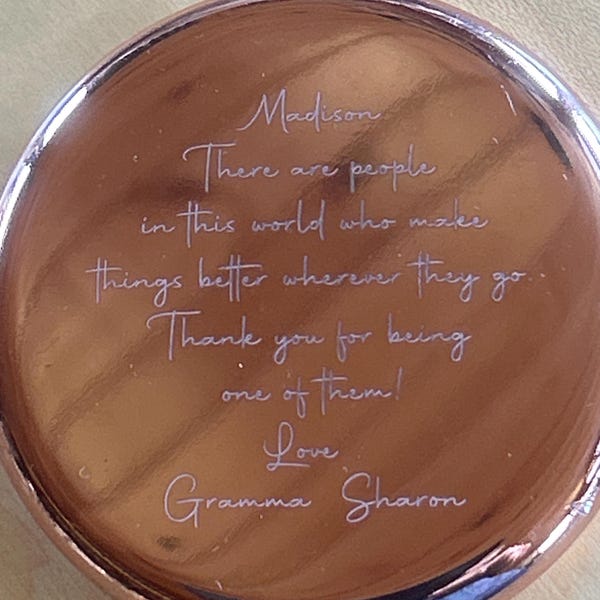 Madison
There are people
in this world who make
things better wherever they go..
Thank you for being
one of them!
Love
Gramma Sharon